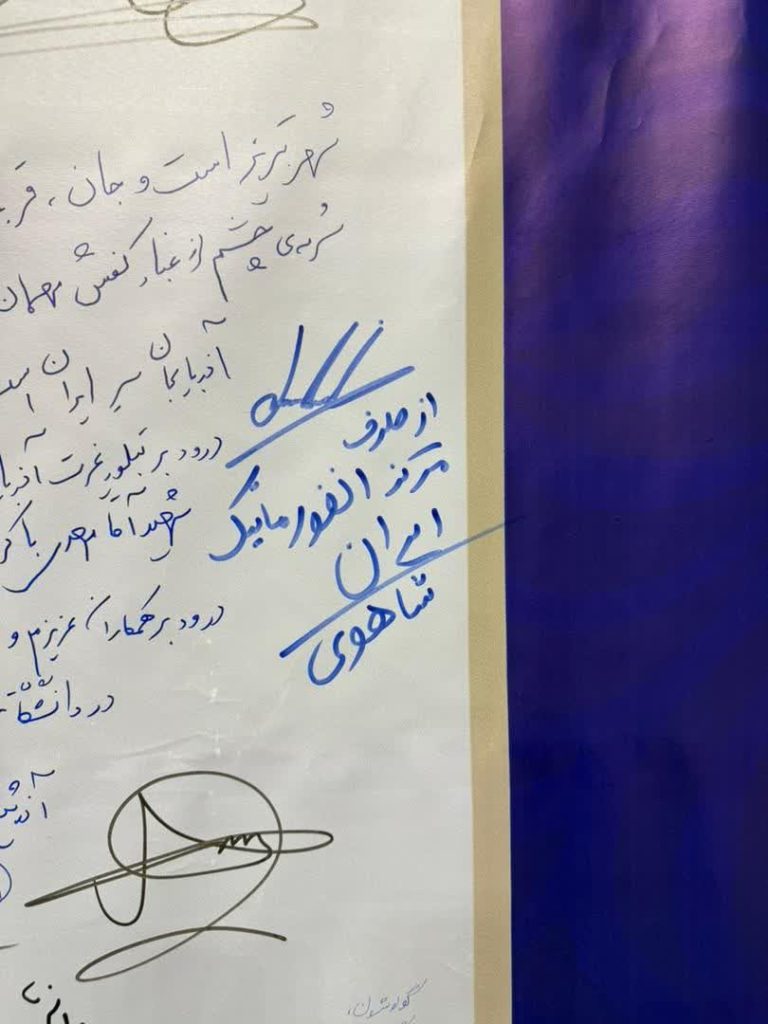 شهر تبریز است و جان ، قر
سُرمه‌ی چشم از غبار کفش مهمان
آذربایجان سر ایران است
درود بر تبلور غیرت آذربا
شهید آقا مهدی باکر
درود بر همکاران عزیزم و
در دانشگاه
از طرف
مرکز انفورماتیک
ایران
شاهوی